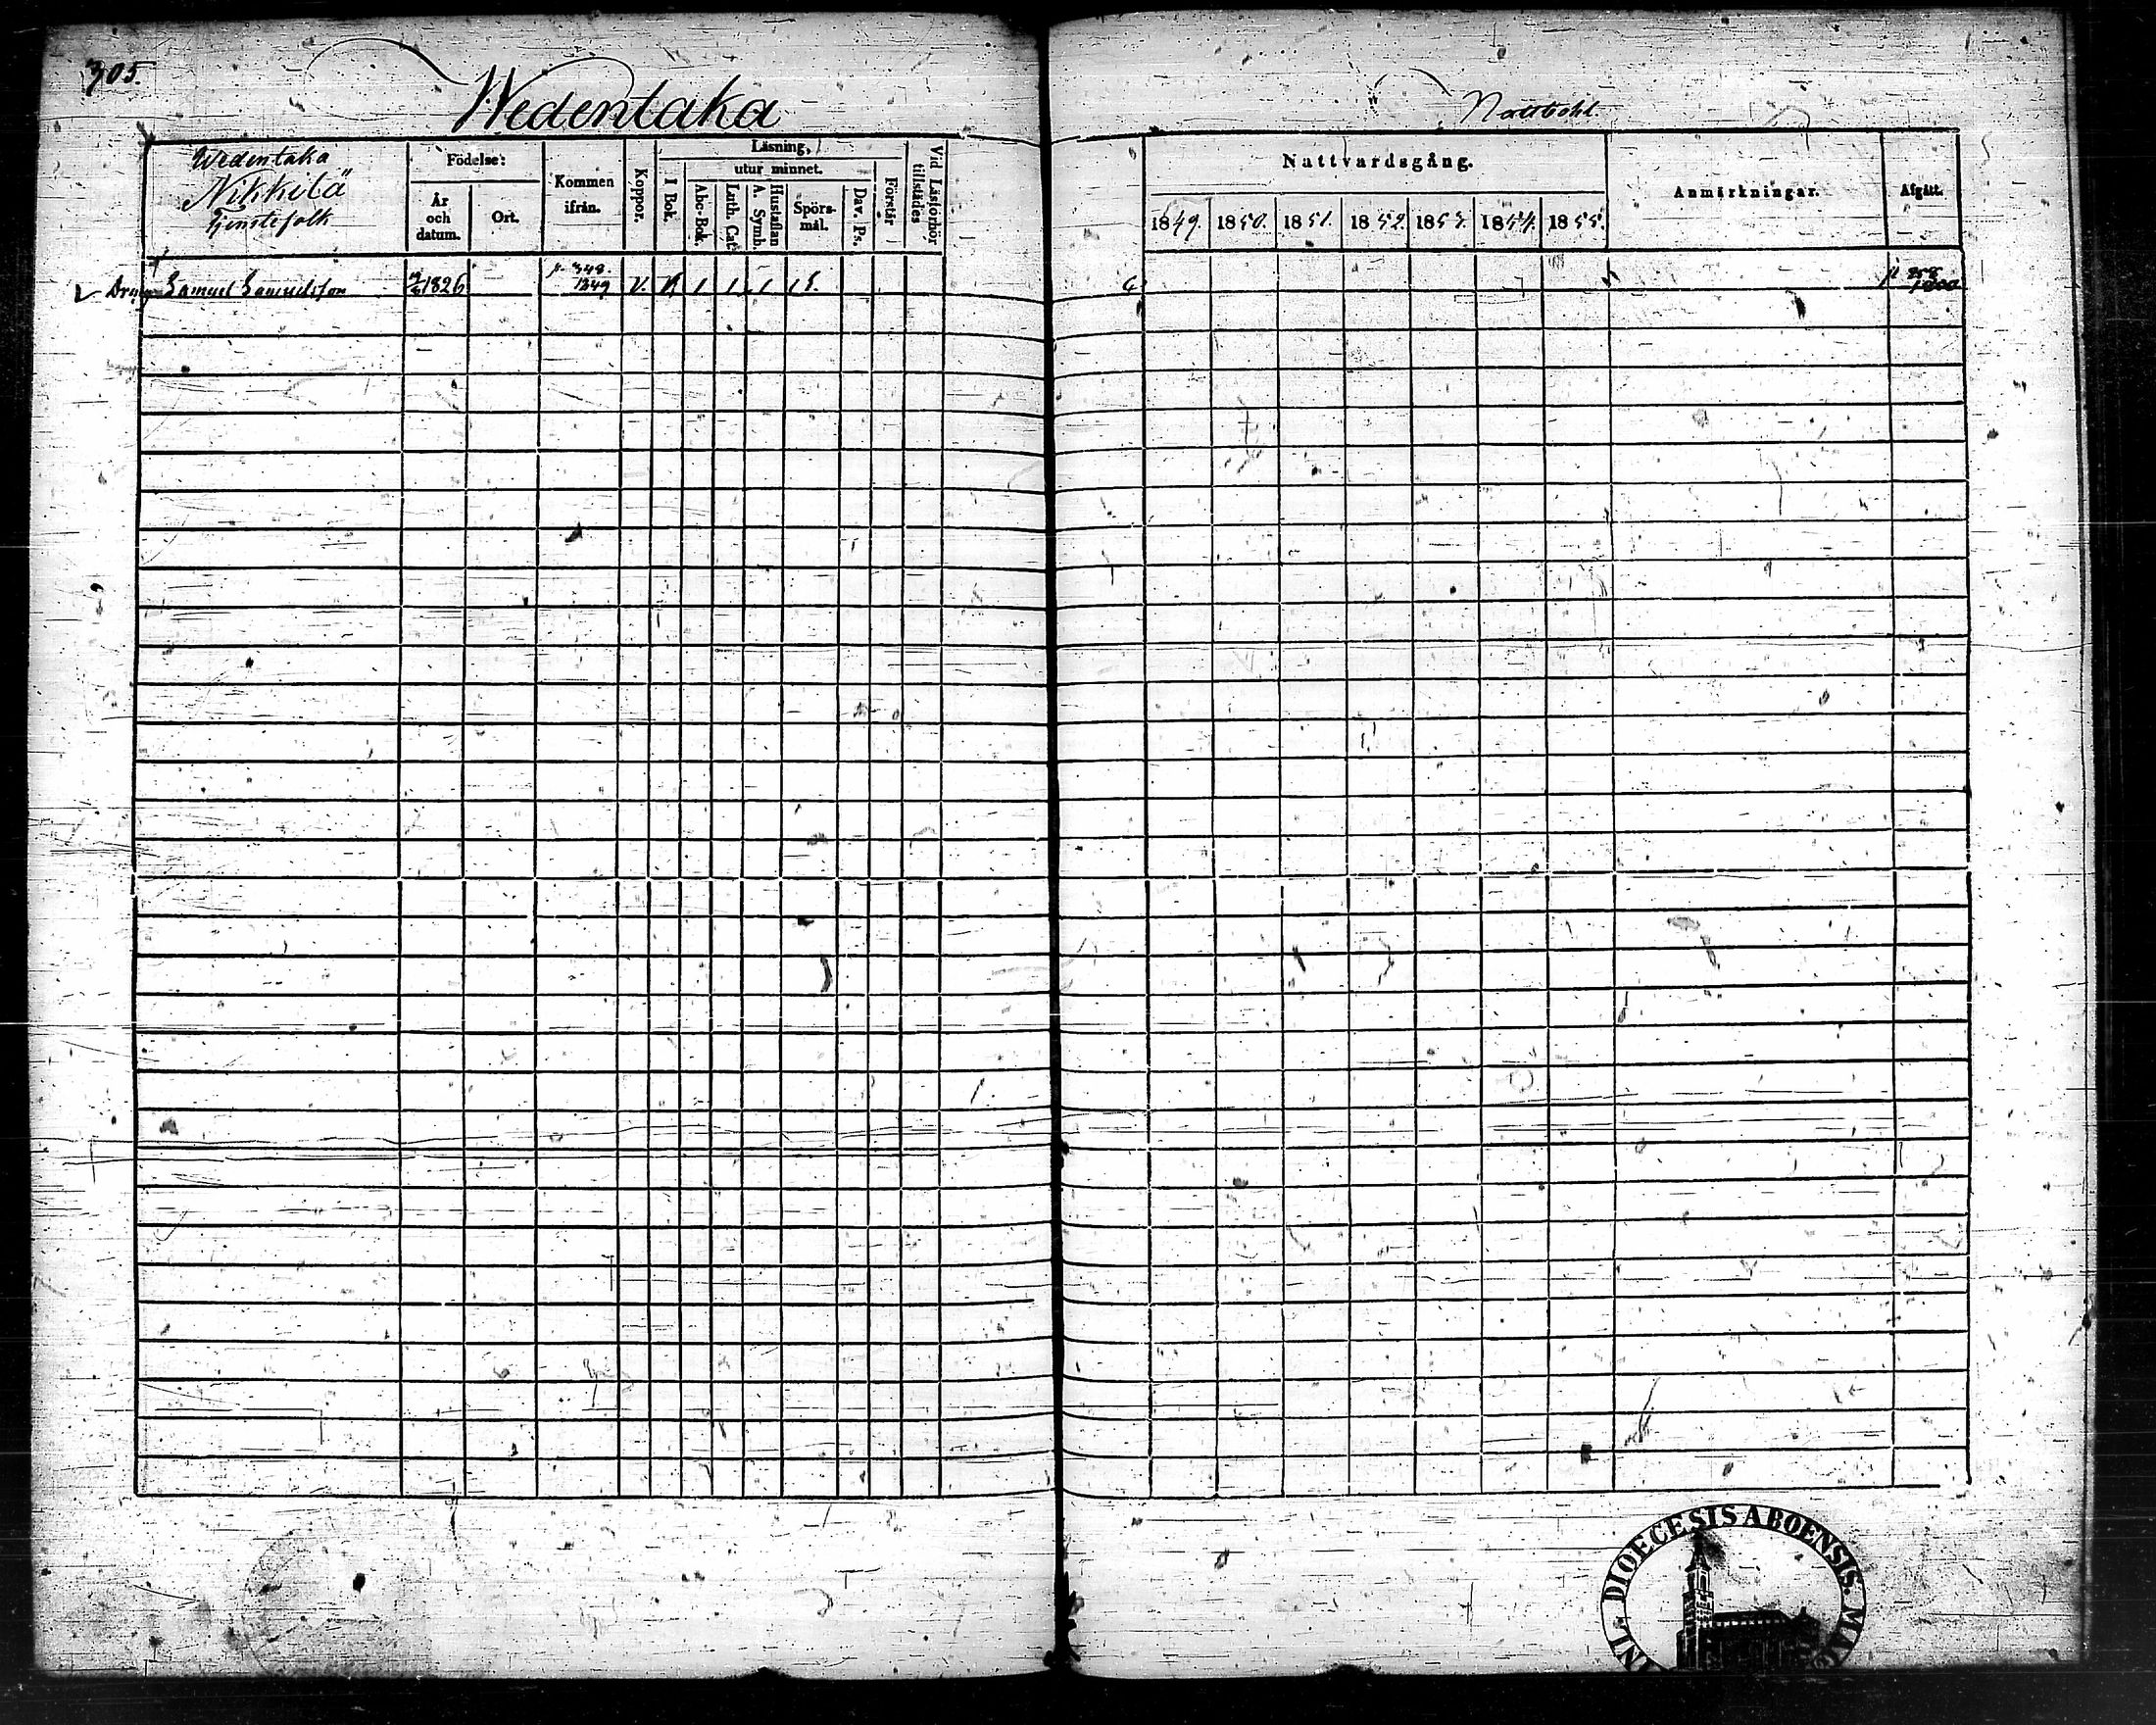 305
Wedentaka
Nattbohl.
Wedentaka
Nikkilä
Tjenstefolk
Födelse:
År och datum.
Ort.
Kommen ifrån.
Koppor.
Läsning,
utur minnet.
I Bok.
Abc-Bok.
Luth. Cat.
A. Symb.
Hustaflan
Spörsmål.
Dav. Ps.
Förstår
Vid Läsförhör tillstädes
Nattvardsgång.
1849. 1850. 1851. 1852. 1853. 1854. 1855.
Anmärkningar.
Afgått.
Dräng Samuel Samuelsson 1826 p. 348. 1849 V.
DIOECESIS ABOENSIS